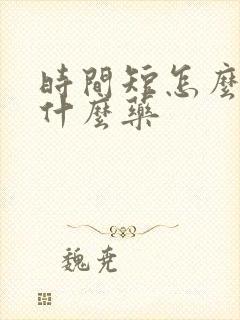 時間短怎麼
什麼藥
魏尭